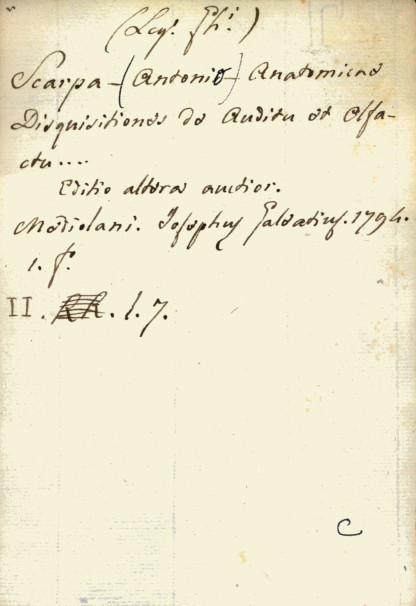 Scarpa - (Antonio) Anatomicae
Disquisitiones de Auditu et Olfa-
ctu....
Editio altera auctior.
Mediolani. Josephus Galeatius. 1794.
1. f.
II. . l. 7.
C